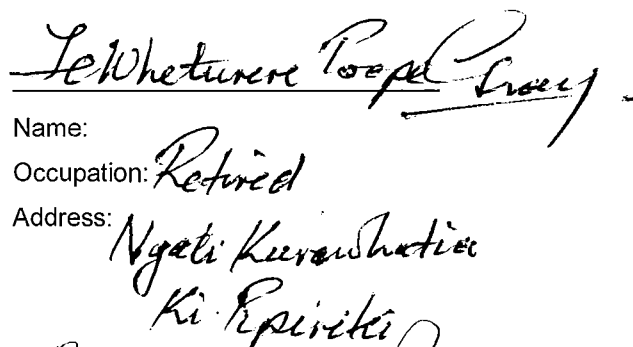 Te Wheturere Poope Gray
Name:
Occupation: Retired
Address:
Ngati Kurawhatia
Ki Pipiriki